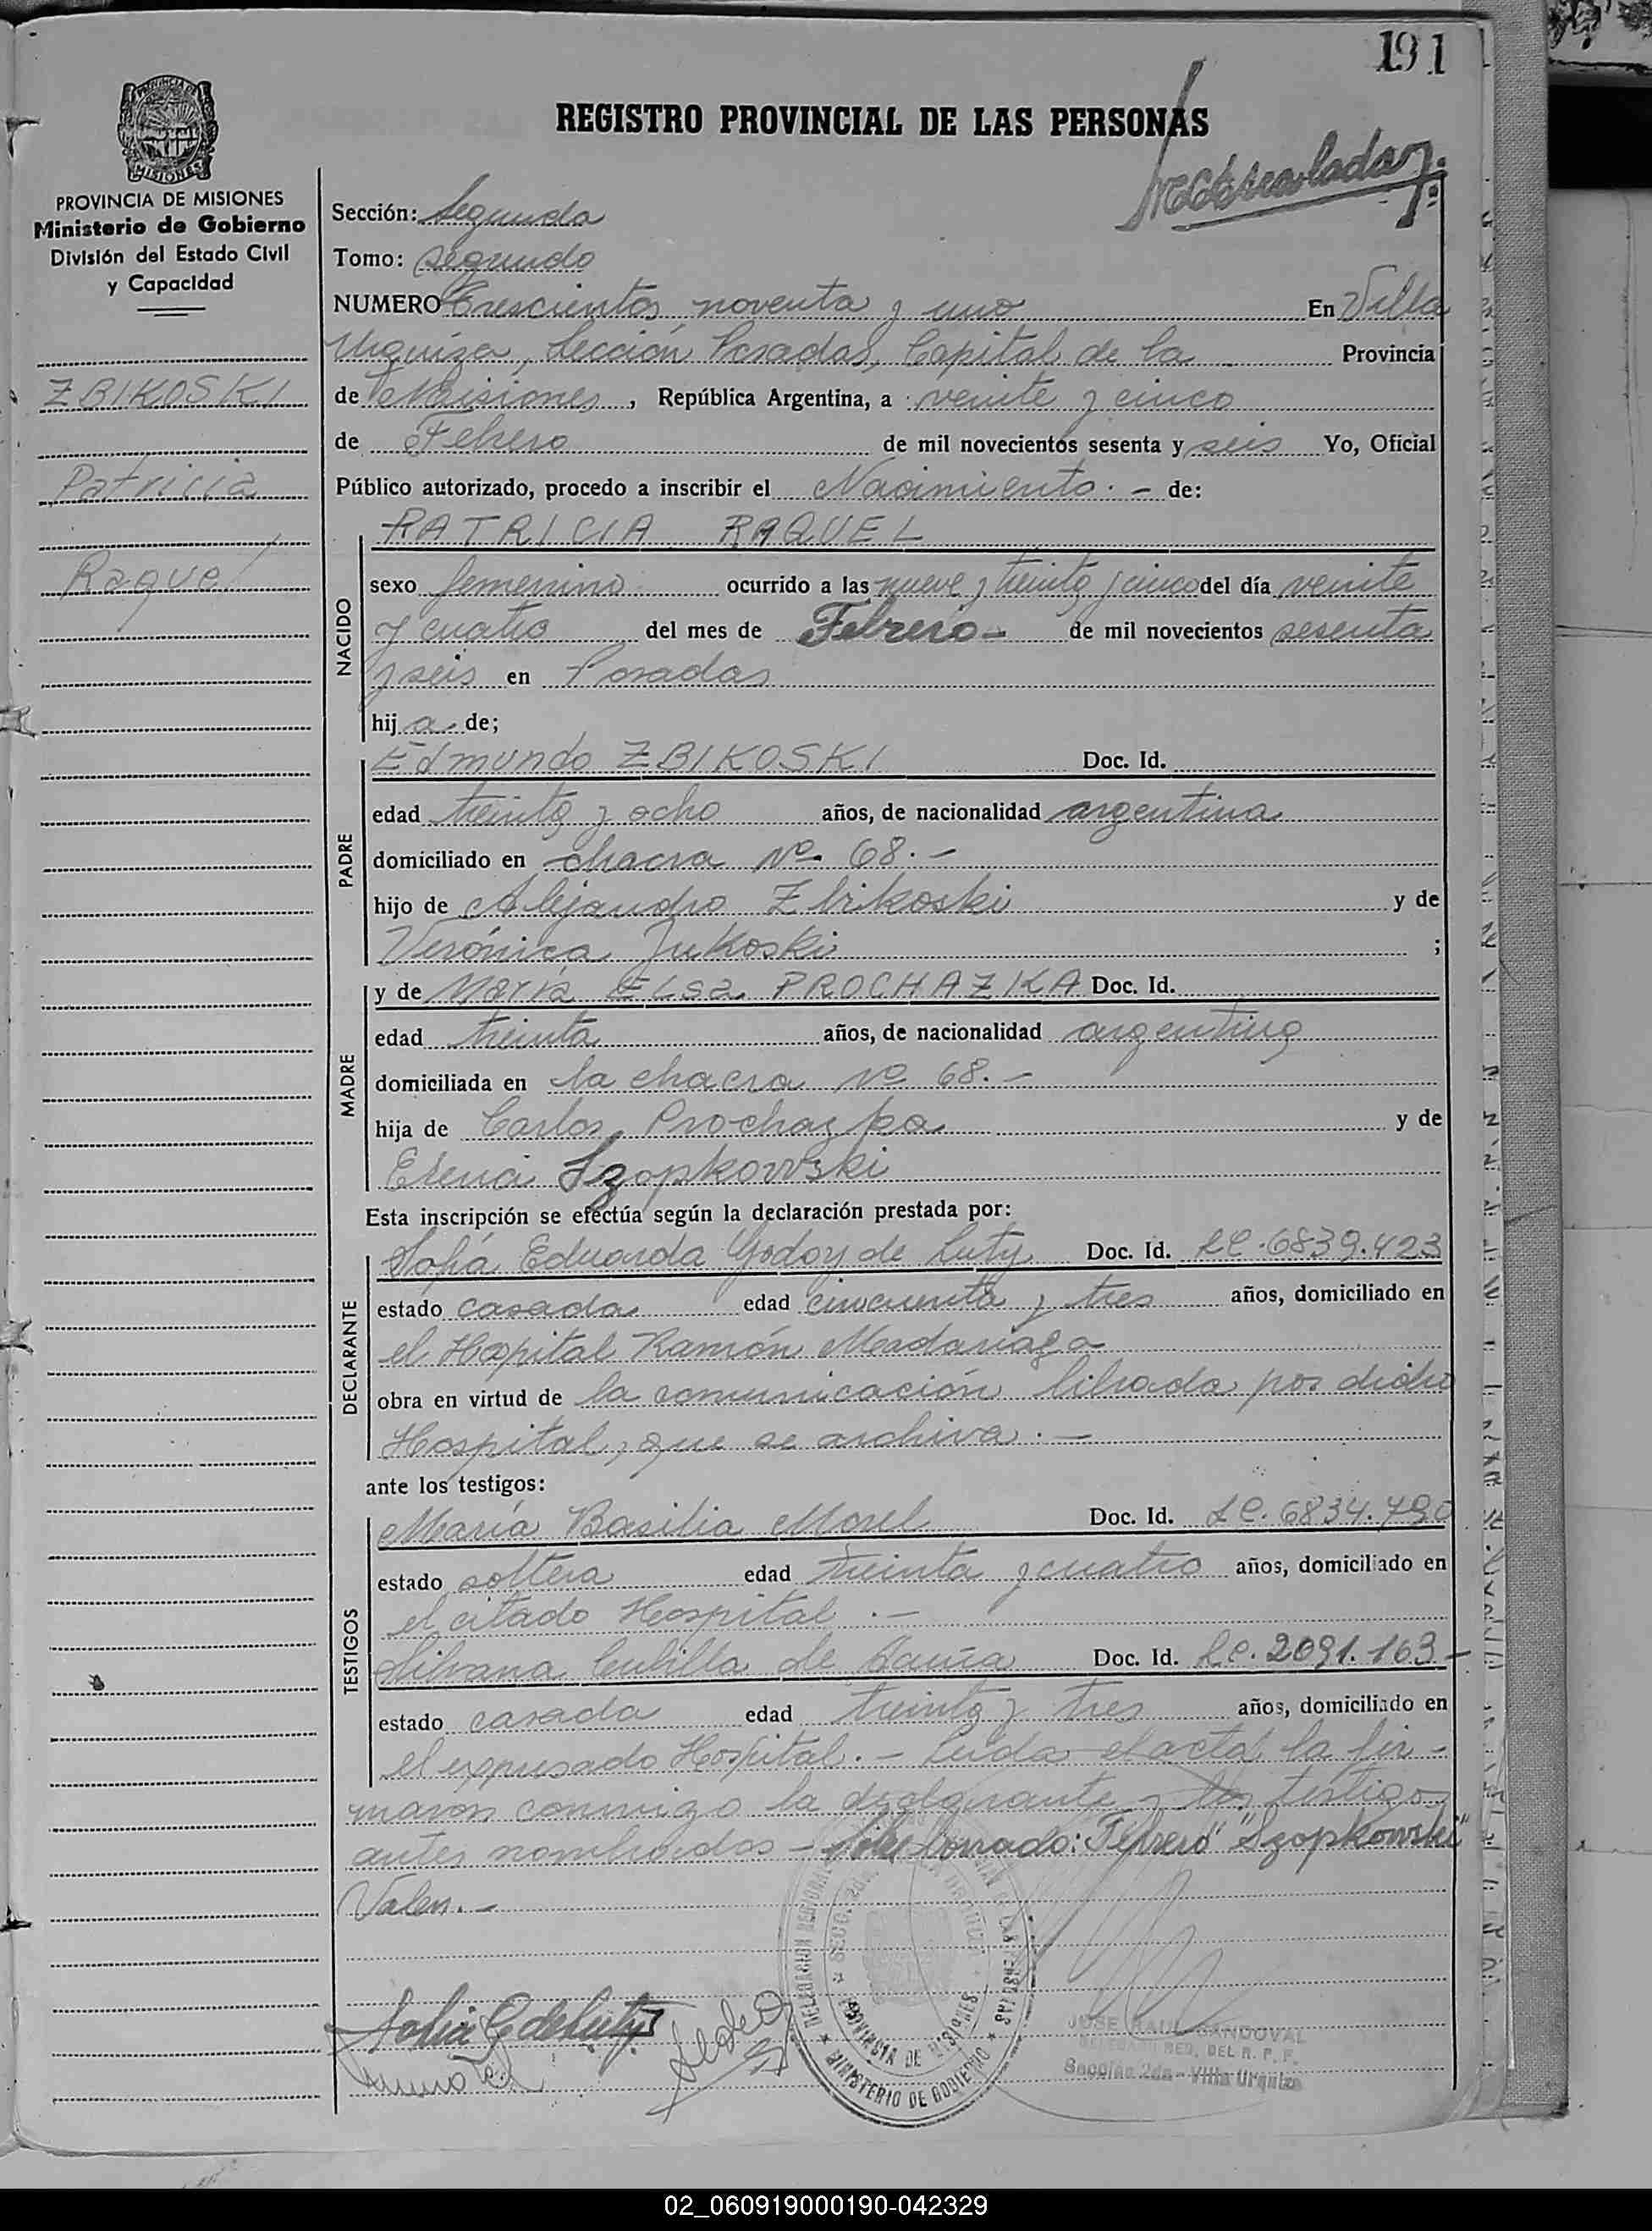 191
REGISTRO PROVINCIAL DE LAS PERSONAS
PROVINCIA DE MISIONES
Ministerio de Gobierno
División del Estado Civil
y Capacidad
ZBIKOSKI
Patricia
Raquel
Sección: Segunda
Tomo: segundo
NUMERO Trescientos noventa y uno En Villa
Urquiza, Sección Posadas, Capital de la Provincia
de Misiones, República Argentina, a veinte y cinco
de Febrero de mil novecientos sesenta y seis Yo, Oficial
Público autorizado, procedo a inscribir el Nacimiento.- de:
NACIDO
PATRICIA RAQUEL
sexo femenino ocurrido a las nueve y treinta y cinco del día veinte
y cuatro del mes de Febrero- de mil novecientos sesenta
y seis en Posadas
hija de;
PADRE
Edmundo ZBIKOSKI Doc. Id.
edad treinta y ocho años, de nacionalidad argentina
domiciliado en chacra Nº 68.-
hijo de Alejandro Zbikoski y de
Verónica Jukoski ;
MADRE
y de María ELsa PROCHAZKA Doc. Id.
edad treinta años, de nacionalidad argentina
domiciliada en la chacra nº 68.-
hija de Carlos Prochazka y de
Elena Szopkowski
Esta inscripción se efectúa según la declaración prestada por:
DECLARANTE
Sofía Eduarda Godoy de Luty Doc. Id. LC.6839.423
estado casada edad cincuenta y tres años, domiciliado en
el Hospital Ramón Madariaga
obra en virtud de la comunicación librada por dicho
Hospital, que se archiva.-
ante los testigos:
TESTIGOS
María Basilia Morel Doc. Id. LC.6834.790
estado soltera edad treinta y cuatro años, domiciliado en
el citado Hospital.-
Silvana Cubilla de Doc. Id. LC.2091.163-
estado casada edad treinta y tres años, domiciliado en
el expresado Hospital.- Leída el acta la fir-
maron conmigo la declarante y los testigos
antes nombrados- Sobre borrado: "Febrero" "Szopkowski"
Valen.-
Sofia G de Luty
PROVINCIA DE MISIONES
MINISTERIO DE GOBIERNO
JOSE RAUL SANDOVAL
DELEGADO REG. DEL R. P. P.
Sección 2da - Villa Urquiza
02_060919000190-042329